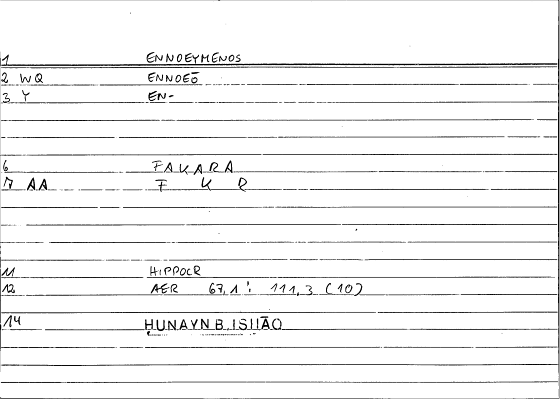 1 ENNOEYMENOS
2 WQ ENNOEŌ
3 Y EN-
6 FAKARA
7 AA F K R
11 HIPPOCR
12 AER 67,1 : 111,3 (10)
14 HUNAYN B. ISḤĀQ